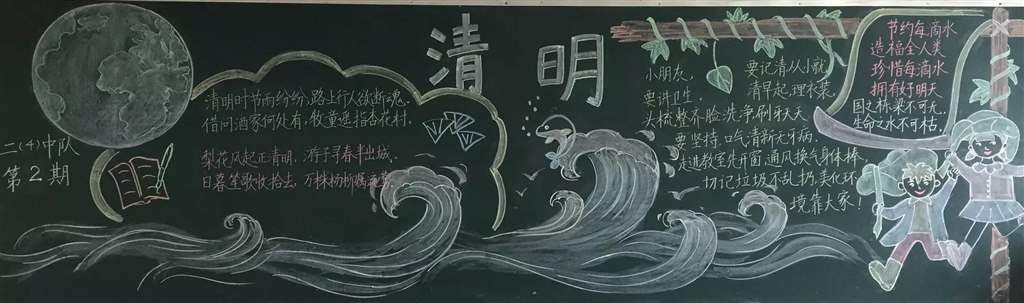 清明
二(4)中队
第2期
清明时节雨纷纷,路上行人欲断魂.
借问酒家何处有,牧童遥指杏花村.
梨花风起正清明.游子寻春半出城.
日暮笙歌收拾去.万株杨柳属流莺.
小朋友,
要讲卫生.
要记清从小就
清早起.理衣装.
头梳整齐脸洗净刷牙天天
要坚持.口气清新无牙病.
走进教室先开窗.通风换气身体棒,
切记垃圾不乱扔.美化环
境靠大家!
节约每滴水
造福全人类
珍惜每滴水
拥有好明天
国之栋梁不可无.
生命之水不可枯.